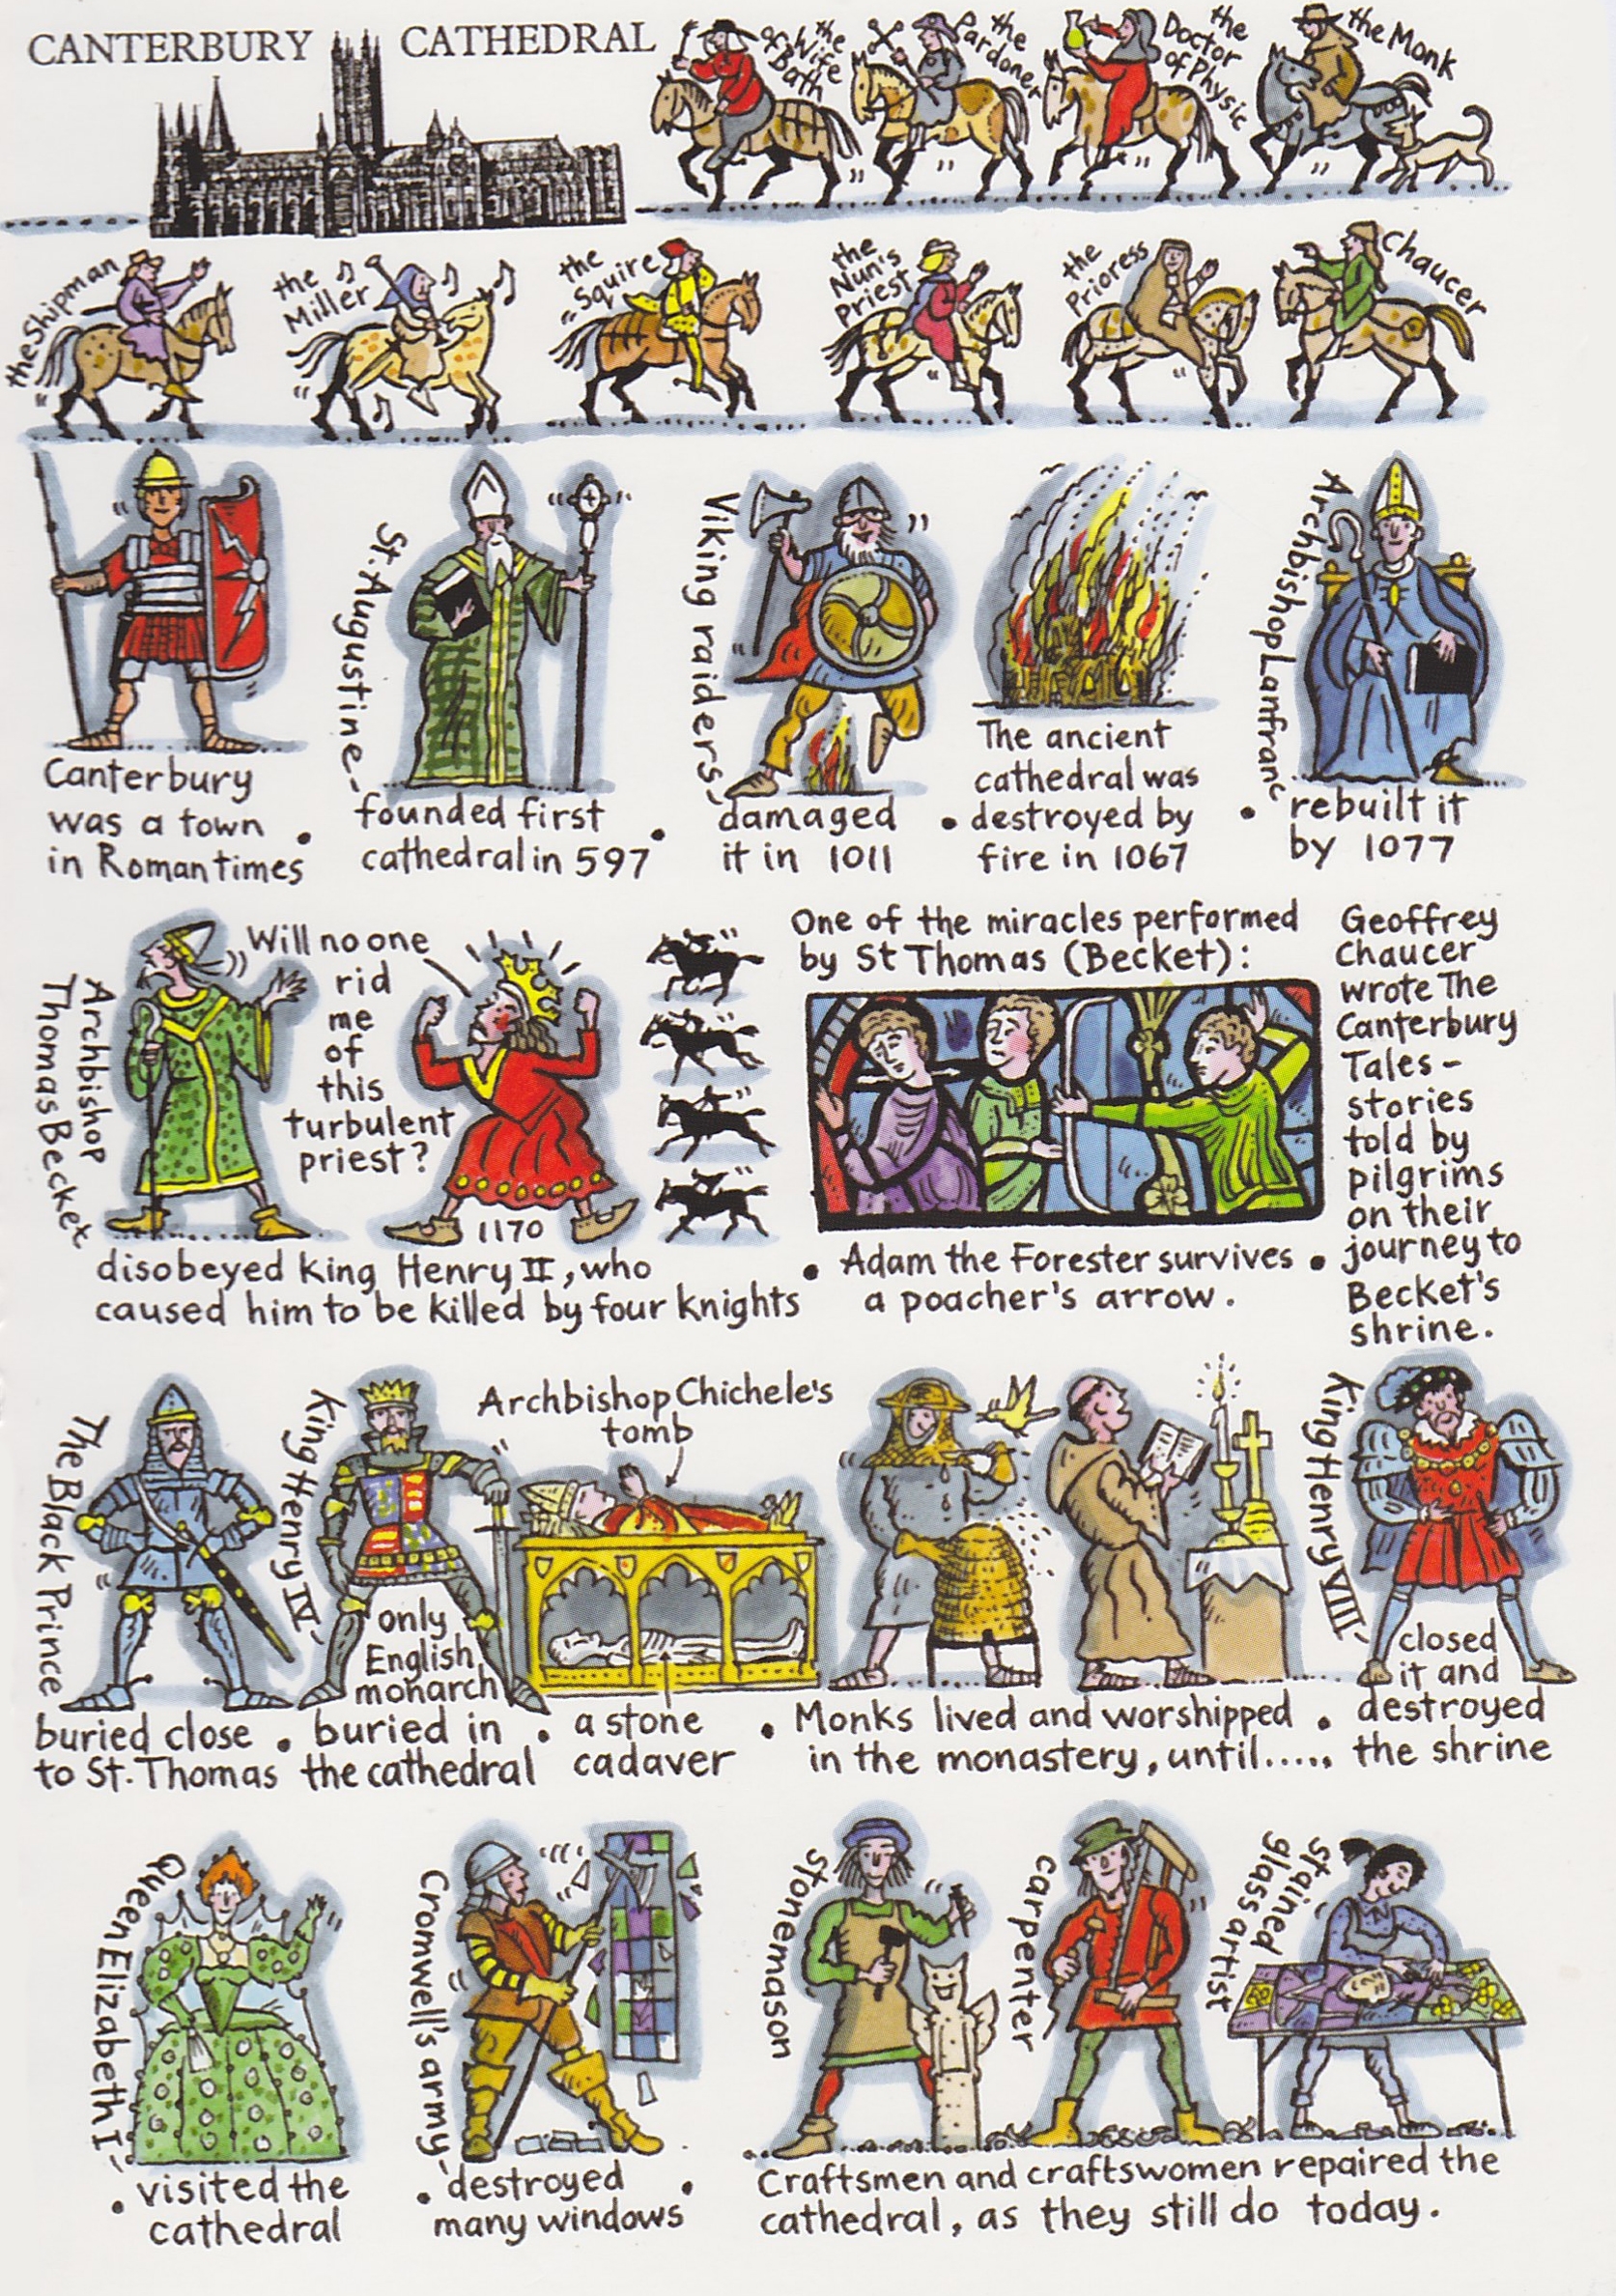 CANTERBURY CATHEDRAL
the Wife
of Bath
the
Pardoner
the
Doctor
of Physic
the Monk
the Shipman
the
Miller
the
Squire
the
Nun's
Priest
the
Prioress
Chaucer
Canterbury
was a town
in Roman times
•
St. Augustine-
founded first
cathedral in 597
•
Viking raiders-
damaged
it in 1011
•
The ancient
cathedral was
destroyed by
fire in 1067
•
Archbishop Lanfranc
rebuilt it
by 1077
Archbishop
Thomas Becket
Will no one
rid
me
of
this
turbulent
priest?
1170
disobeyed king Henry II, who
caused him to be killed by four knights
•
One of the miracles performed
by St Thomas (Becket):
Adam the Forester survives
a poacher's arrow.
•
Geoffrey
Chaucer
wrote The
Canterbury
Tales-
stories
told by
pilgrims
on their
journey to
Becket's
shrine.
The Black Prince
buried close
to St. Thomas
•
King Henry IV-
only
English
monarch
buried in
the cathedral
•
Archbishop Chichele's
tomb
a stone
cadaver
•
Monks lived and worshipped
in the monastery, until.....
•
King Henry VIII-
closed
it and
destroyed
the shrine
•
Queen Elizabeth I-
visited the
cathedral
•
Cromwell's army-
destroyed
many windows
•
stonemason
carpenter
stained
glass artist
Craftsmen and craftswomen repaired the
cathedral, as they still do today.